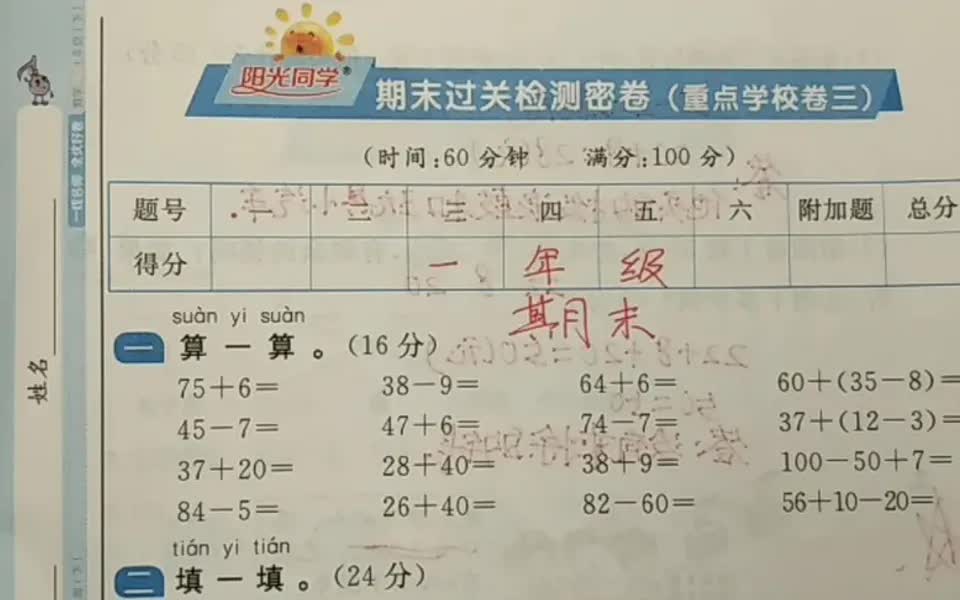 阳光同学®
期末过关检测密卷（重点学校卷三）
（时间:60分钟 满分:100分）
题号 一 二 三 四 五 六 附加题 总分
得分
一年级
期末
suàn yi suàn
一 算一算。（16分）
75＋6＝ 38－9＝ 64＋6＝ 60＋(35－8)＝
45－7＝ 47＋6＝ 74－7＝ 37＋(12－3)＝
37＋20＝ 28＋40＝ 38＋9＝ 100－50＋7＝
84－5＝ 26＋40＝ 82－60＝ 56＋10－20＝
tián yi tián
二 填一填。（24分）
姓名